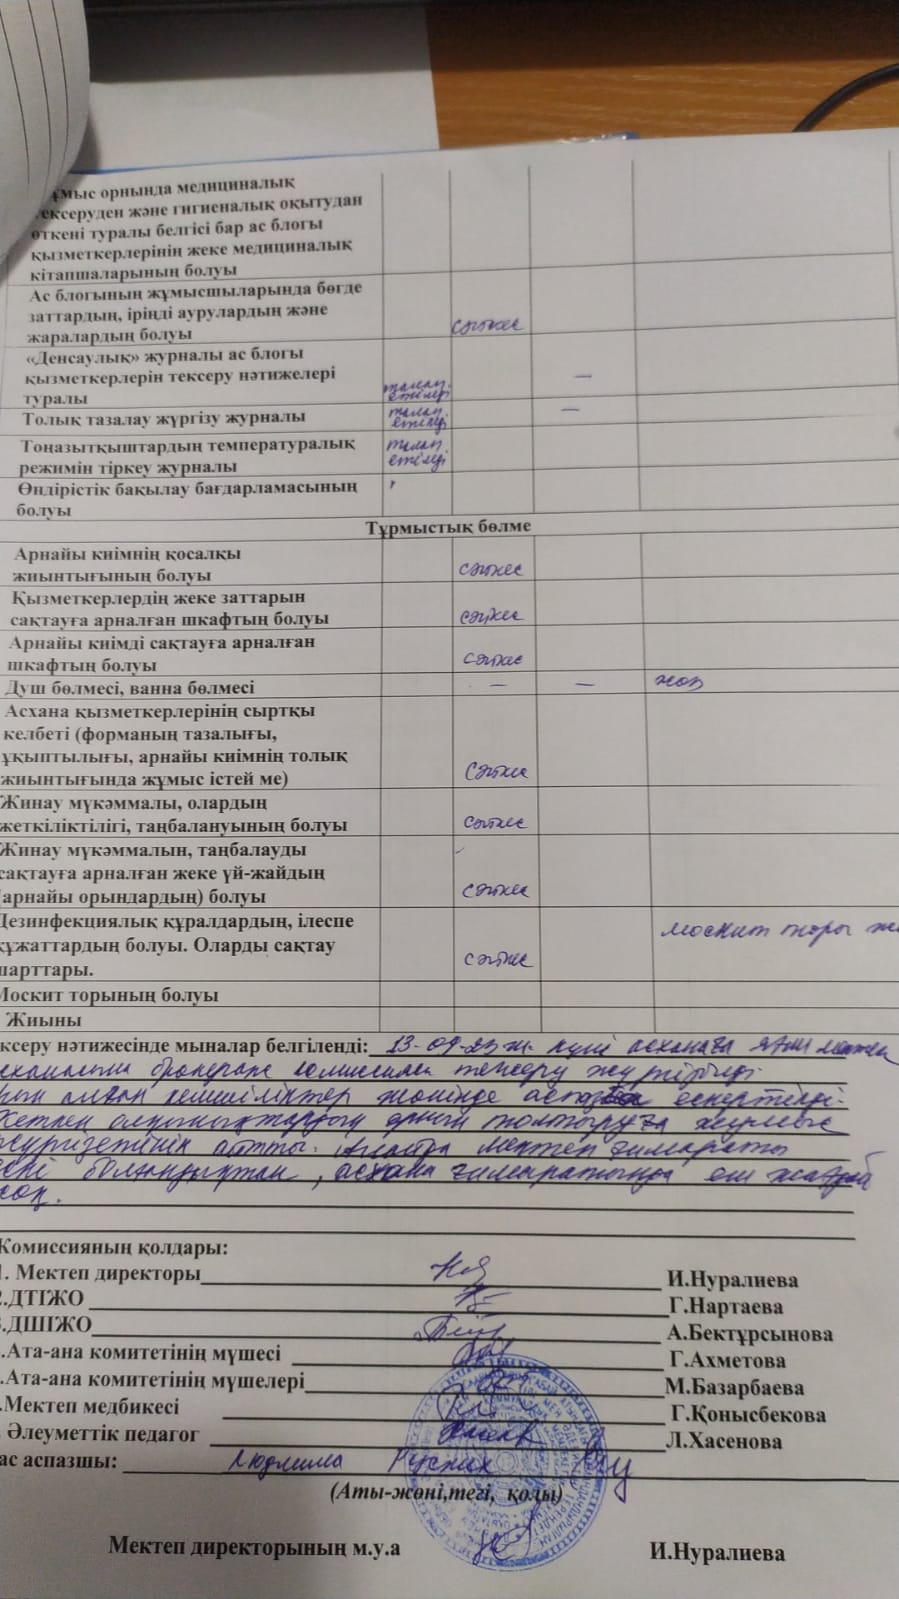 ұмыс орнында медициналық
ексеруден және гигиеналық оқытудан
өткені туралы белгісі бар ас блогы
қызметкерлерінің жеке медициналық
кітапшаларының болуы
Ас блогының жұмысшыларында бөгде
заттардың, іріңді аурулардың және
жаралардың болуы
сәйкес
«Денсаулық» журналы ас блогы
қызметкерлерін тексеру нәтижелері
туралы
талап етіледі
—
Толық тазалау жүргізу журналы
талап етіледі
—
Тоңазытқыштардың температуралық
режимін тіркеу журналы
талап етіледі
Өндірістік бақылау бағдарламасының
болуы
Тұрмыстық бөлме
Арнайы киімнің қосалқы
жиынтығының болуы
сәйкес
Қызметкерлердің жеке заттарын
сақтауға арналған шкафтың болуы
сәйкес
Арнайы киімді сақтауға арналған
шкафтың болуы
сәйкес
Душ бөлмесі, ванна бөлмесі
— — жоқ
Асхана қызметкерлерінің сыртқы
келбеті (форманың тазалығы,
ұқыптылығы, арнайы киімнің толық
жиынтығында жұмыс істей ме)
сәйкес
Жинау мүкәммалы, олардың
жеткіліктілігі, таңбалануының болуы
сәйкес
Жинау мүкәммалын, таңбалауды
сақтауға арналған жеке үй-жайдың
арнайы орындардың) болуы
сәйкес
Дезинфекциялық құралдардың, ілеспе
құжаттардың болуы. Оларды сақтау
шарттары.
сәйкес
москит торы
Москит торының болуы
Жиыны
ксеру нәтижесінде мыналар белгіленді: 13-09-23 ж. күні асханаға
бракераж комиссиясы тексеру жүргізілді
орын алған кемшіліктер жөнінде ескертілді.
орнын толтыруға жұмыс
мектеп ғимараты
болғандықтан, асхана ғимаратында еш жағдай
жоқ.
Комиссияның қолдары:
1. Мектеп директоры И.Нуралиева
2.ДТІЖО Г.Нартаева
3.ДШІЖО А.Бектұрсынова
.Ата-ана комитетінің мүшесі Г.Ахметова
.Ата-ана комитетінің мүшелері М.Базарбаева
.Мектеп медбикесі Г.Қонысбекова
Әлеуметтік педагог Л.Хасенова
ас аспазшы: Людмила
(Аты-жөні,тегі, қолы)
Мектеп директорының м.у.а И.Нуралиева